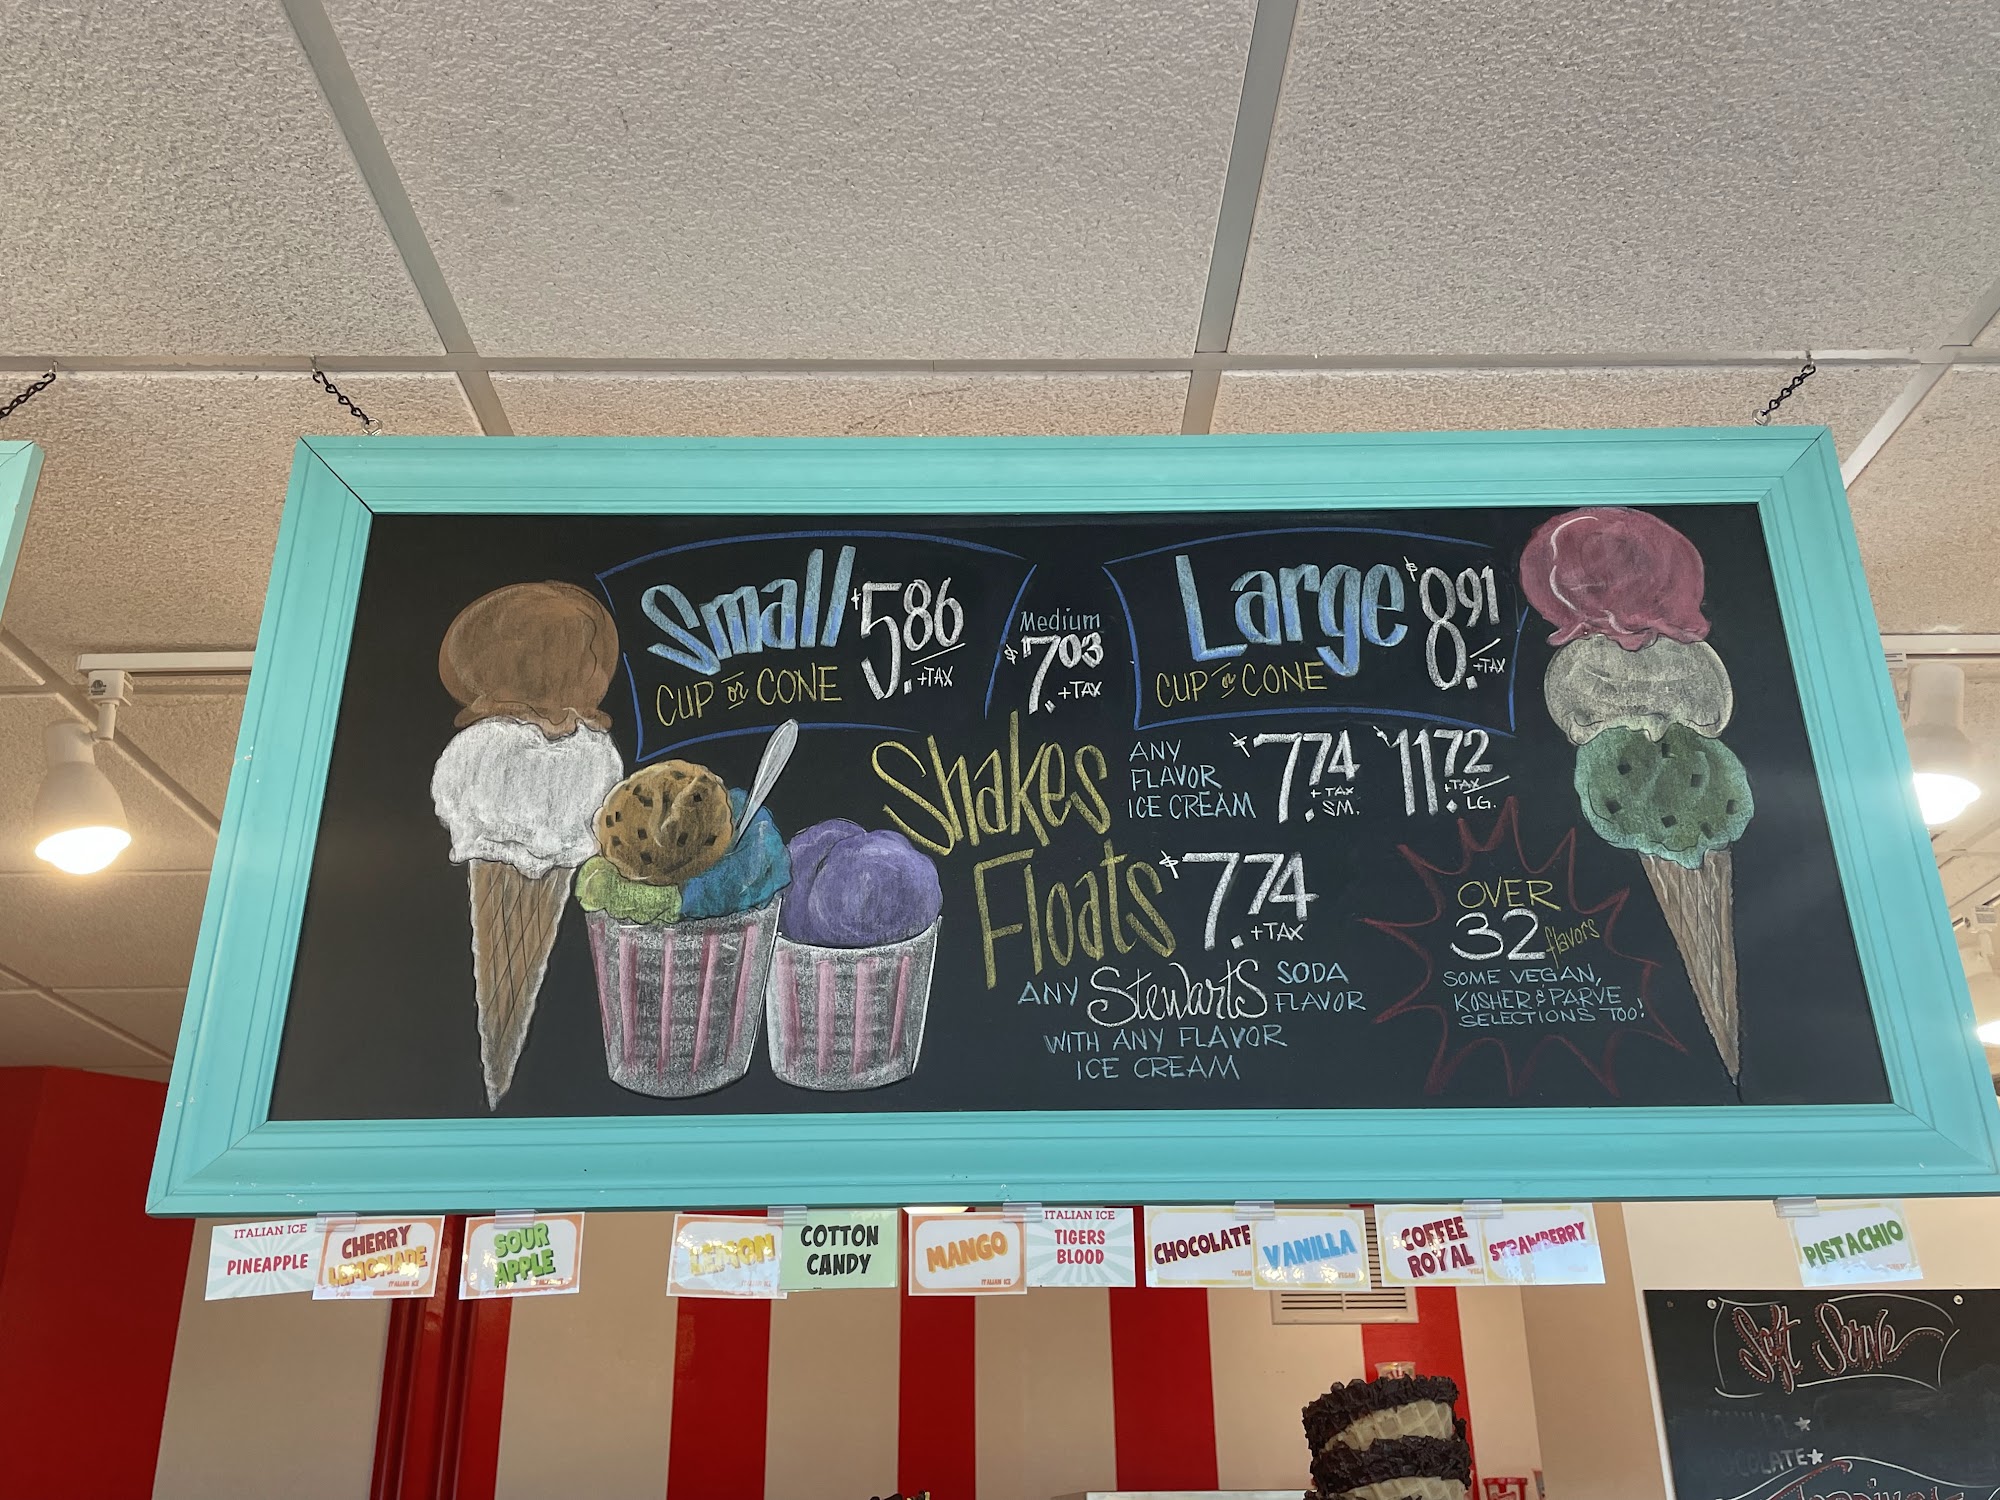 Small $5.86 +TAX
CUP or CONE
Medium
$7.03
+TAX
Large $8.91 +TAX
CUP or CONE
Shakes
ANY
FLAVOR
ICE CREAM
$7.74
+TAX
SM.
$11.72
+TAX
LG.
Floats $7.74
+TAX
ANY Stewarts SODA
FLAVOR
WITH ANY FLAVOR
ICE CREAM
OVER
32 flavors
SOME VEGAN,
KOSHER & PARVE
SELECTIONS TOO!
ITALIAN ICE
PINEAPPLE
CHERRY
LEMONADE
ITALIAN ICE
SOUR
APPLE
LEMON
ITALIAN ICE
COTTON
CANDY
MANGO
ITALIAN ICE
ITALIAN ICE
TIGERS
BLOOD
CHOCOLATE
*VEGAN
VANILLA
*VEGAN
COFFEE
ROYAL
STRAWBERRY
PISTACHIO
Soft Serve
CHOCOLATE